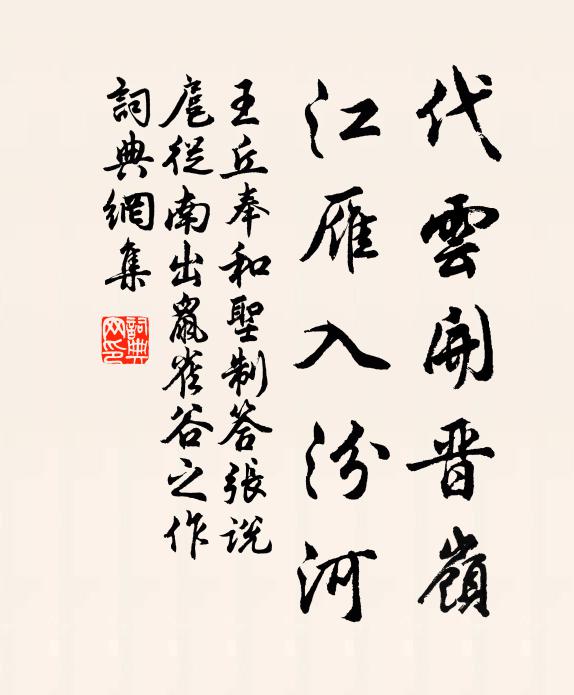 代雲開晋嶺
江雁入汾河
王丘奉和聖制答張說
扈從南出鼠雀谷之作
詞典網集
詞典网印